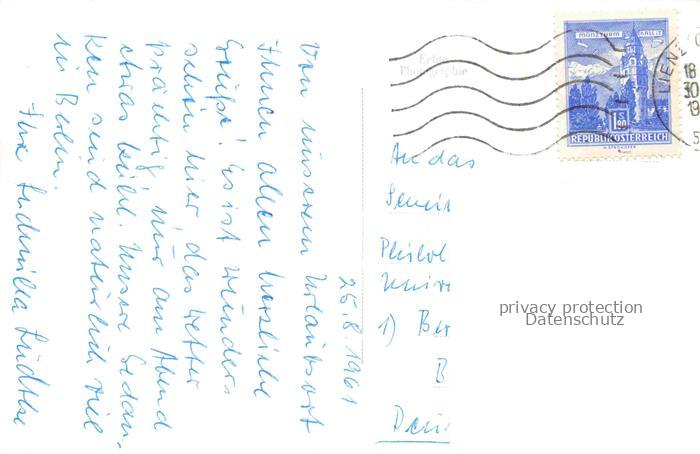 25.8.1961
Von unserem Urlaubsort
Ihnen allen herzliche
Grüße! Es ist wunder-
schön hier das Wetter
prächtig nur am Abend
etwas kühl. Unsere Gedan-
ken sind natürlich viel
in Berlin.
Ihre Ludmilla
Echte
Photographie
MÜNZTURM HALL i/T
S 1.80
REPUBLIK ÖSTERREICH
LIENZ
18
30
19
5
An das
Semin
Philol
Unive
1) Ber
B
Deu
privacy protection
Datenschutz